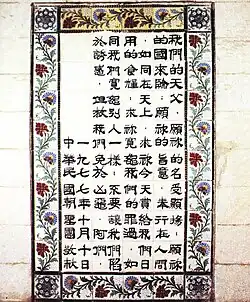 我們的天父，願祢的名受顯揚；願祢
的國來臨；願祢的旨意奉行在人間
，如同在天上。求祢今天賞給我們日
用的食糧；求祢寬恕我們的罪過，如
同我們寬恕別人一樣；不要讓我們陷
於誘惑，但救我們免於凶惡。阿們
一九七七年十月十日
中華民國朝聖團敬獻